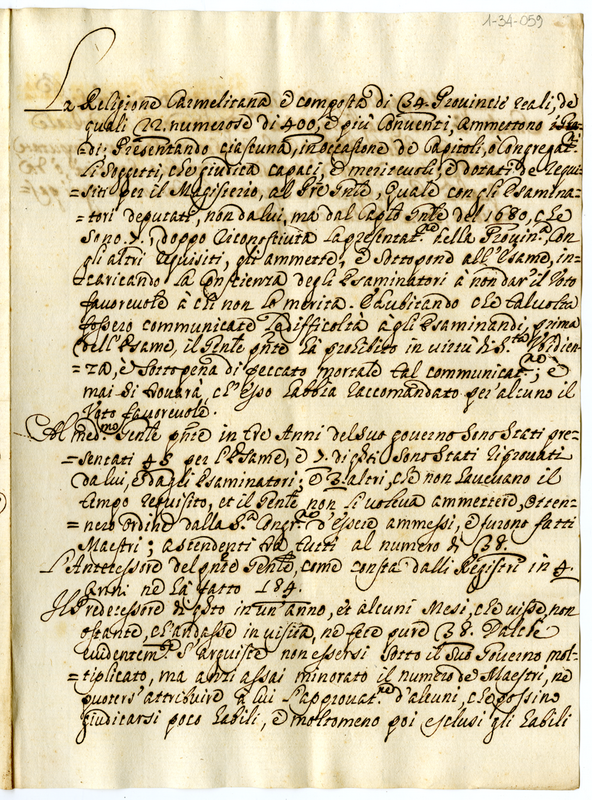 1-34-059
La Religione Carmelitana è composta di 34. Provincie reali, de
quali 22. numerose di 400, e più Conventi, ammettono
di: Presentando ciascuna, in occasione de Capitoli, o Congregat.
li Soggetti, che giudica capaci, e meritevoli, e dotati de requi-
=siti per il Magisterio, al Pre Gnle, Quale con gli Esamina-
=tori deputati, non da lui, ma dal Caplo Gnle del 1680, che
sono 7., doppo riconosciuta la presentat.ne della Provin.a, con
gli altri requisiti, gli ammette, e sottopond all'Esame, in-
=caricando la Conscienza degli Esaminatori à non dar il Voto
favorevole à chi non lo merita. E dubitando che talvolta
fossero communicate le difficoltà agli Esaminandi, prima
dell'Esame, il Gnle pnte hà prohibito in virtù di S.ta Obedien-
=za, e sotto pena di peccato mortale tal communicat.ne; e
mai si trovarà, ch'Esso habbia raccomandato per alcuno il
Voto favorevole.
Al med.mo Gnle pnte in tre Anni del suo governo sono stati pre-
=sentati 48 per l'Esame, e 7. di essi sono stati riprovati
da lui, e dagli Esaminatori; e 3. altri, che non havevano il
tempo requisito, et il Gnle non li voleva ammettere, otten-
=nero ordine dalla S.a Congr.ne d'essere ammessi, e furono fatti
Maestri; ascendenti trà tutti al numero di 38.
L'Antecessore del pnte Gnle, come consta dalli Registri in 4.
anni ne hà fatto 184.
Il Predecessore di questo in un'anno, et alcuni Mesi, che visse, non
ostante, ch'andasse in visita, ne fece pure 38. Dal che
evidentem.te s'arguisce non essersi sotto il suo Governo mol-
=tiplicato, ma anzi assai minorato il numero de Maestri, ne
potersi attribuire à lui l'approvat.ne d'alcuni, che possino
giudicarsi poco habili, e molto meno poi esclusi gli habili